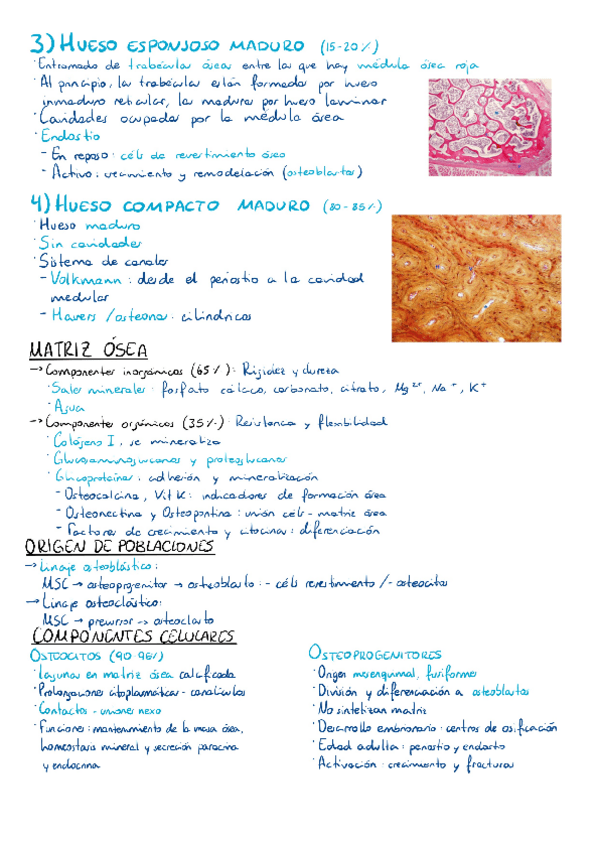 3) HUESO ESPONJOSO MADURO (15-20%)
· Entramado de trabéculas óseas entre las que hay médula ósea roja
· Al principio, las trabéculas están formadas por hueso
inmaduro reticular, las maduras por hueso laminar
· Cavidades ocupadas por la médula ósea
· Endostio
- En reposo: céls de revestimiento óseo
- Activo: crecimiento y remodelación (osteoblastos)
4) HUESO COMPACTO MADURO (80-85%)
· Hueso maduro
· Sin cavidades
· Sistema de canales
- Volkmann: desde el periostio a la cavidad
medular
- Havers / osteonas: cilíndricos
MATRIZ ÓSEA
→ Componentes inorgánicos (65%): Rigidez y dureza
· Sales minerales: fosfato cálcico, carbonato, citrato, Mg²⁺, Na⁺, K⁺
· Agua
→ Componentes orgánicos (35%): Resistencia y flexibilidad
· Colágeno I, se mineraliza
· Glucosaminoglucanos y proteoglucanos
· Glucoproteínas: adhesión y mineralización
- Osteocalcina, Vit K: indicadores de formación ósea
- Osteonectina y Osteopontina: unión céls - matriz ósea
- Factores de crecimiento y citocinas: diferenciación
ORIGEN DE POBLACIONES
→ Linaje osteoblástico:
MSC → osteoprogenitor → osteoblasto: - céls revestimiento / - osteocitos
→ Linaje osteoclástico:
MSC → precursor -> osteoclasto
COMPONENTES CELULARES
OSTEOCITOS (90 96%)
· Lagunas en matriz ósea calcificada
· Prolongaciones citoplasmáticas - canalículos
· Contactos - uniones nexo
· Funciones: mantenimiento de la masa ósea,
homeostasia mineral y secreción paracrina
y endocrina
OSTEOPROGENITORES
· Origen mesenquimal, fusiformes
· División y diferenciación a osteoblastos
· No sintetizan matriz
· Desarrollo embrionario: centros de osificación
· Edad adulta: periostio y endostio
· Activación: crecimiento y fracturas